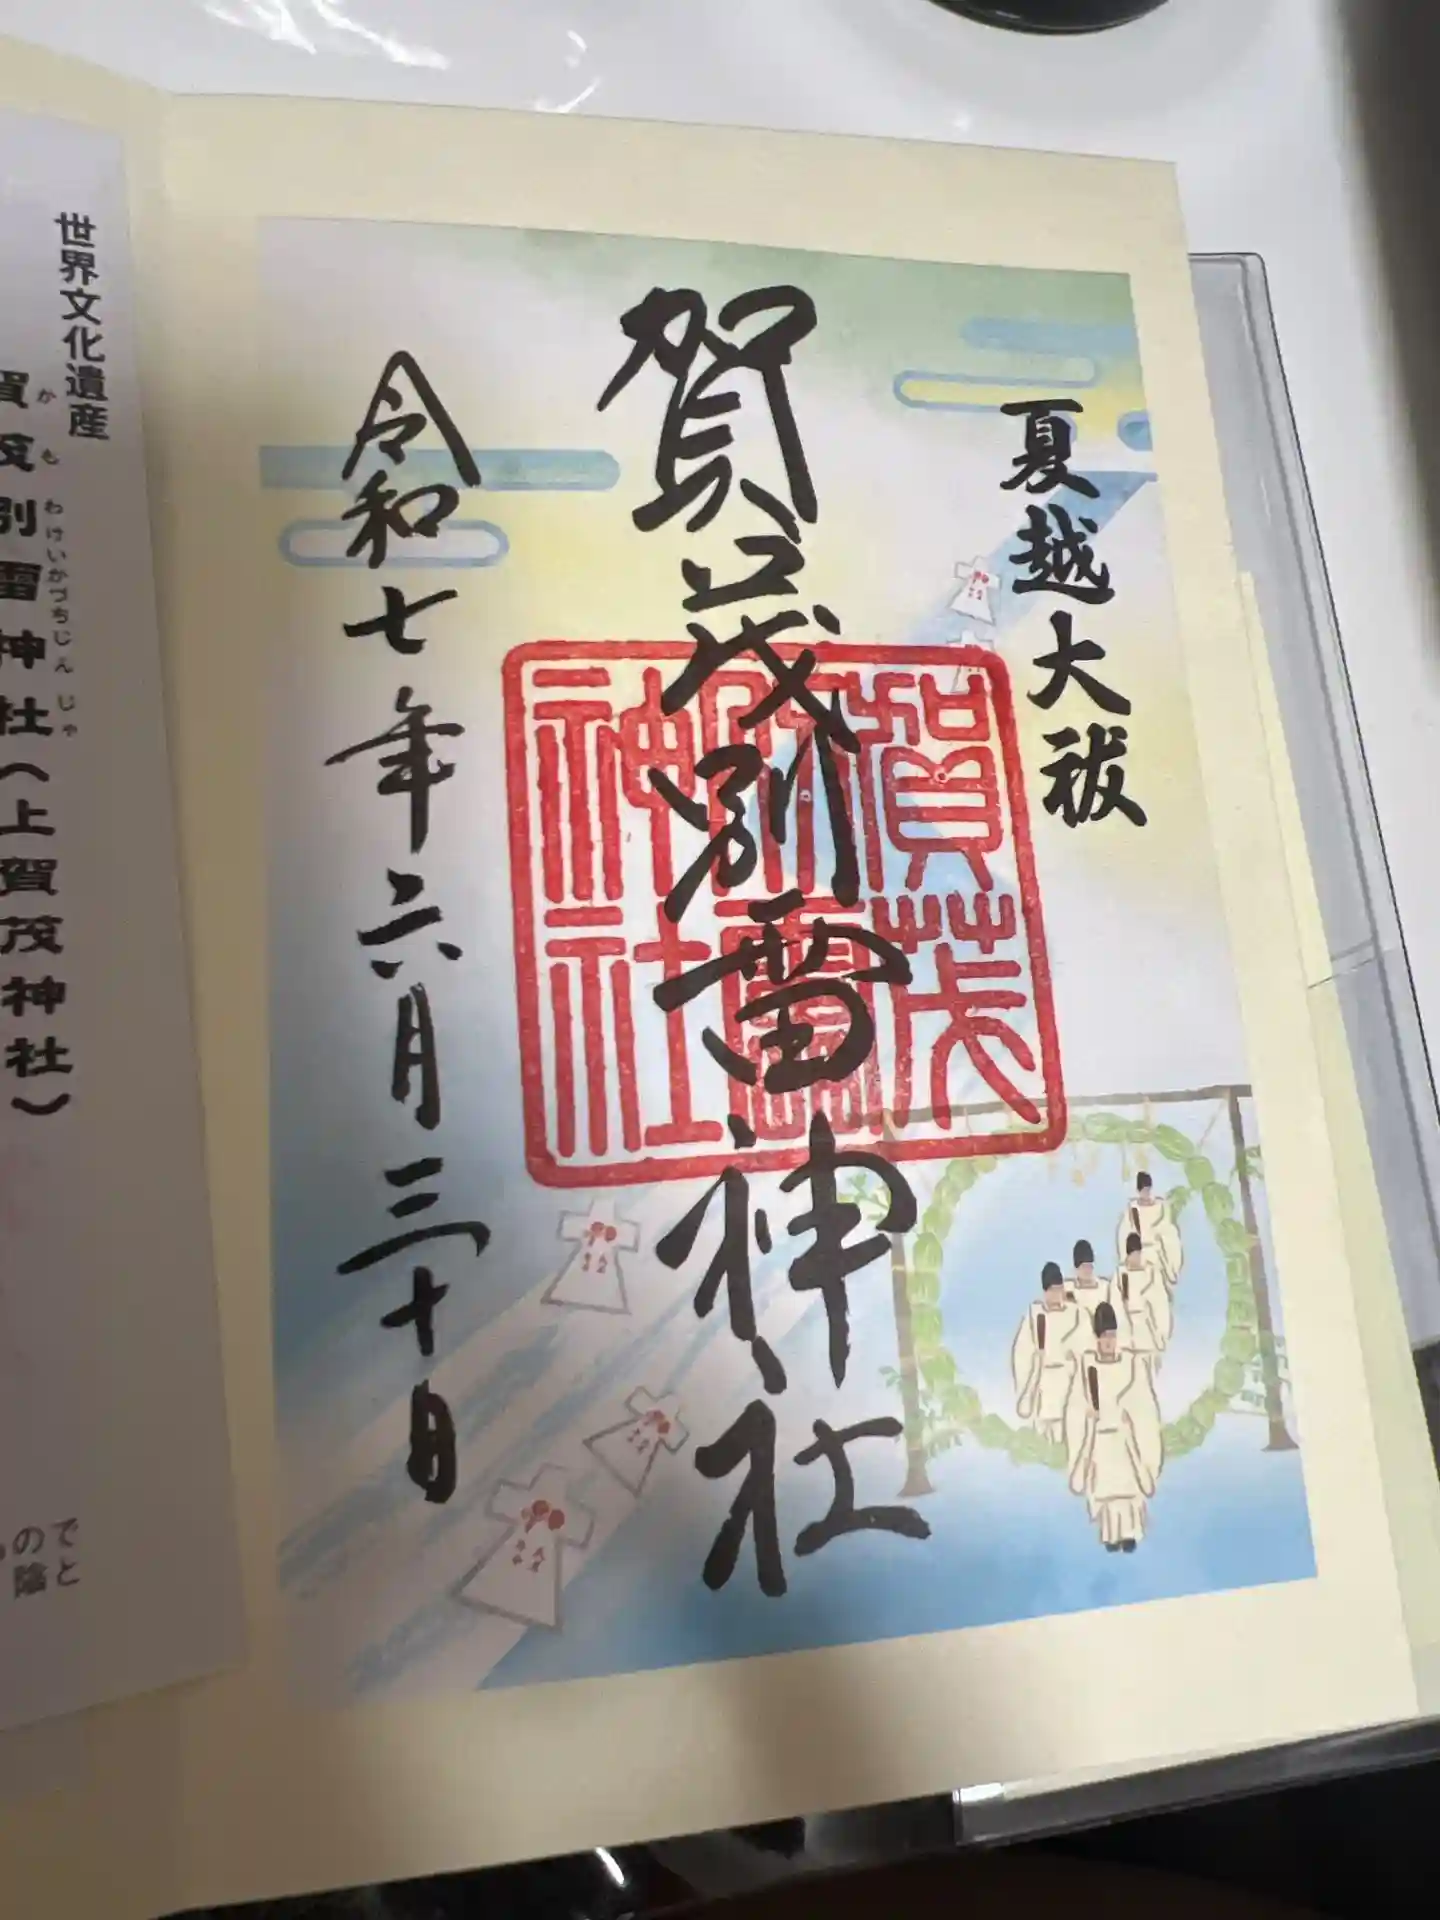 夏越大祓
賀茂別雷神社
令和七年六月三十日
賀茂
別雷
神社
世界文化遺産
賀茂別雷神社(上賀茂神社)
かもわけいかづちじんじゃ
でと
の陰